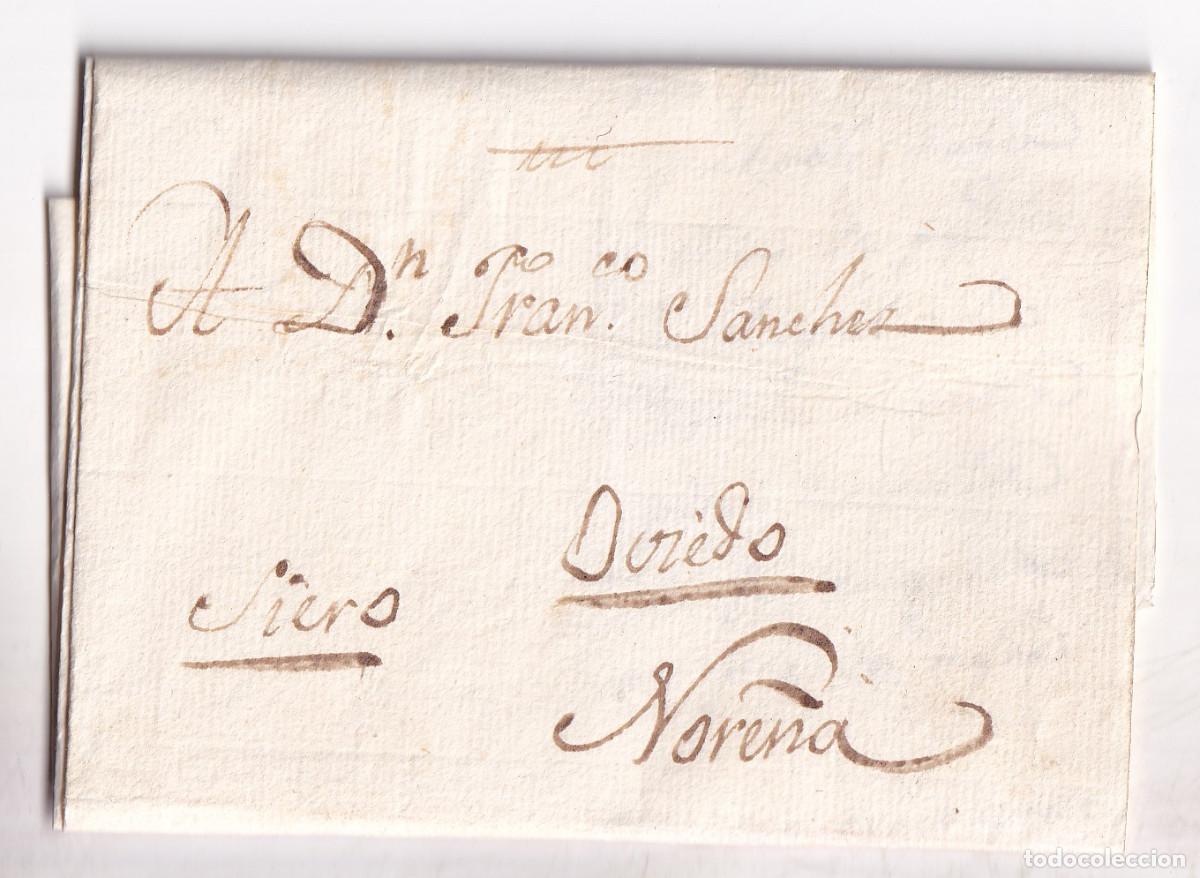 A Dn. Franco. Sanchez
Oviedo
Siero
Noreña
todocoleccion